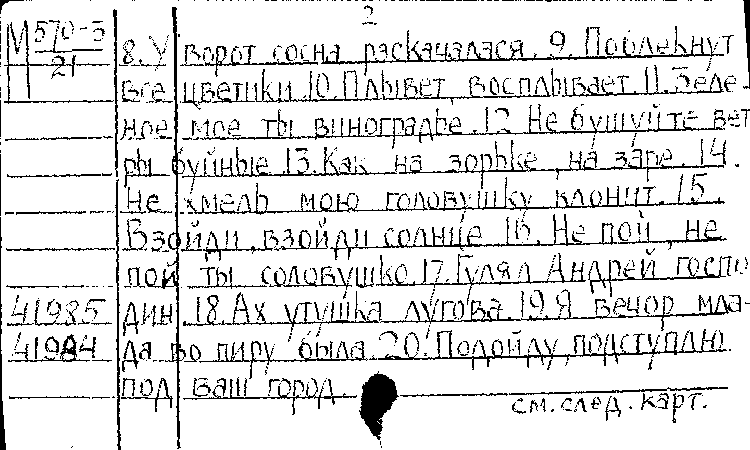 2
М 570-3
21
8. У ворот сосна раскачалася. 9. Поблекнут
все цветики. 10. Плывет, восплывает. 11. Зеле-
ное мое ты виноградье. 12. Не бушуйте вет
ры буйные. 13. Как на зорьке, на заре. 14.
Не хмель мою головушку клонит. 15.
Взойди, взойди солнце. 16. Не пой, не
пой ты соловушко. 17. Гулял Андрей госпо
41985 дин. 18. Ах утушка лугова. 19. Я вечор мла-
41984 да во пиру была. 20. Подойду, подступлю
под ваш город.
см. след. карт.